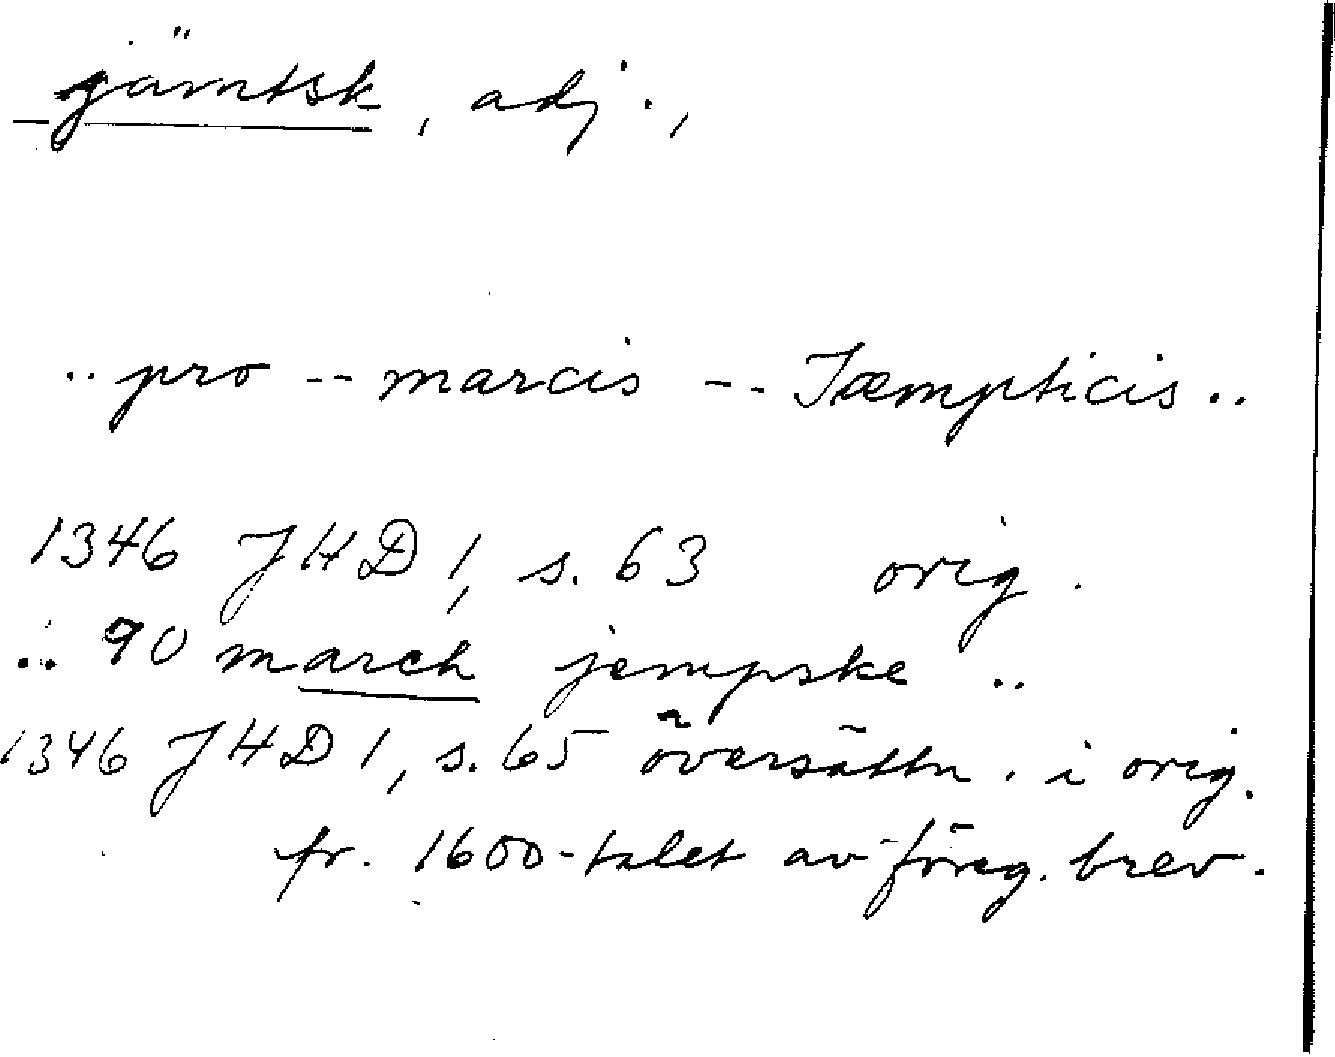 jämtsk, adj.,
.. pro -- marcis -- Jæmpticis ..
1346 JHD 1, s. 63 orig.
.. 90 march jempske ..
1346 JHD 1, s. 65 översättn. i orig.
fr. 1600-talet av föreg. brev.